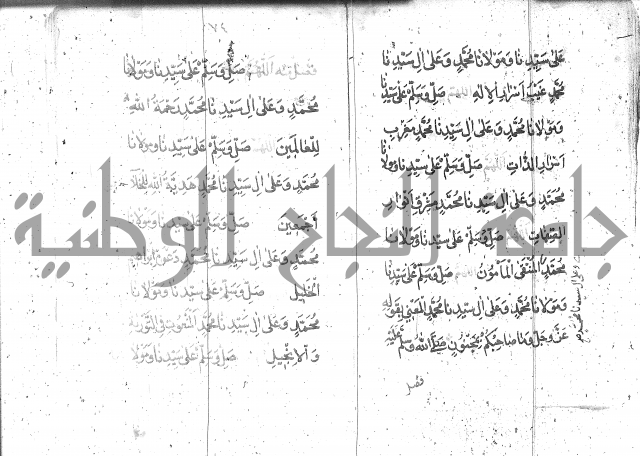 على سيدنا ومولانا محمد وعلى ال سيدنا
محمد عيبة اسرار الاله اللهم صل وسلم على سيدنا
ومولانا محمد وعلى ال سيدنا محمد مغرب
اسرار الذات اللهم صل وسلم على سيدنا ومولانا
محمد وعلى ال سيدنا محمد مشرق انوار
الصفات صل وسلم على سيدنا ومولانا
محمد المنتقى المأمون صل وسلم على سيدنا
ومولانا محمد وعلى ال سيدنا محمد المعني بقوله
عز وجل وما صاحبكم بمجنون صلى الله وسلم عليه
وعلى ال سيدنا محمد
فصل
٧٤
فصل اللهم صل وسلم على سيدنا ومولانا
محمد وعلى ال سيدنا محمد رحمة الله
للعالمين اللهم صل وسلم على سيدنا ومولانا
محمد وعلى ال سيدنا محمد هدية الله
أجمعين صل وسلم على سيدنا ومولانا
محمد وعلى ال سيدنا محمد ودعوة ابراهيم
الخليل صل وسلم على سيدنا ومولانا
محمد وعلى ال سيدنا محمد المنعوت في التورية
والانجيل صل وسلم على سيدنا ومولانا
جامعة النجاح الوطنية